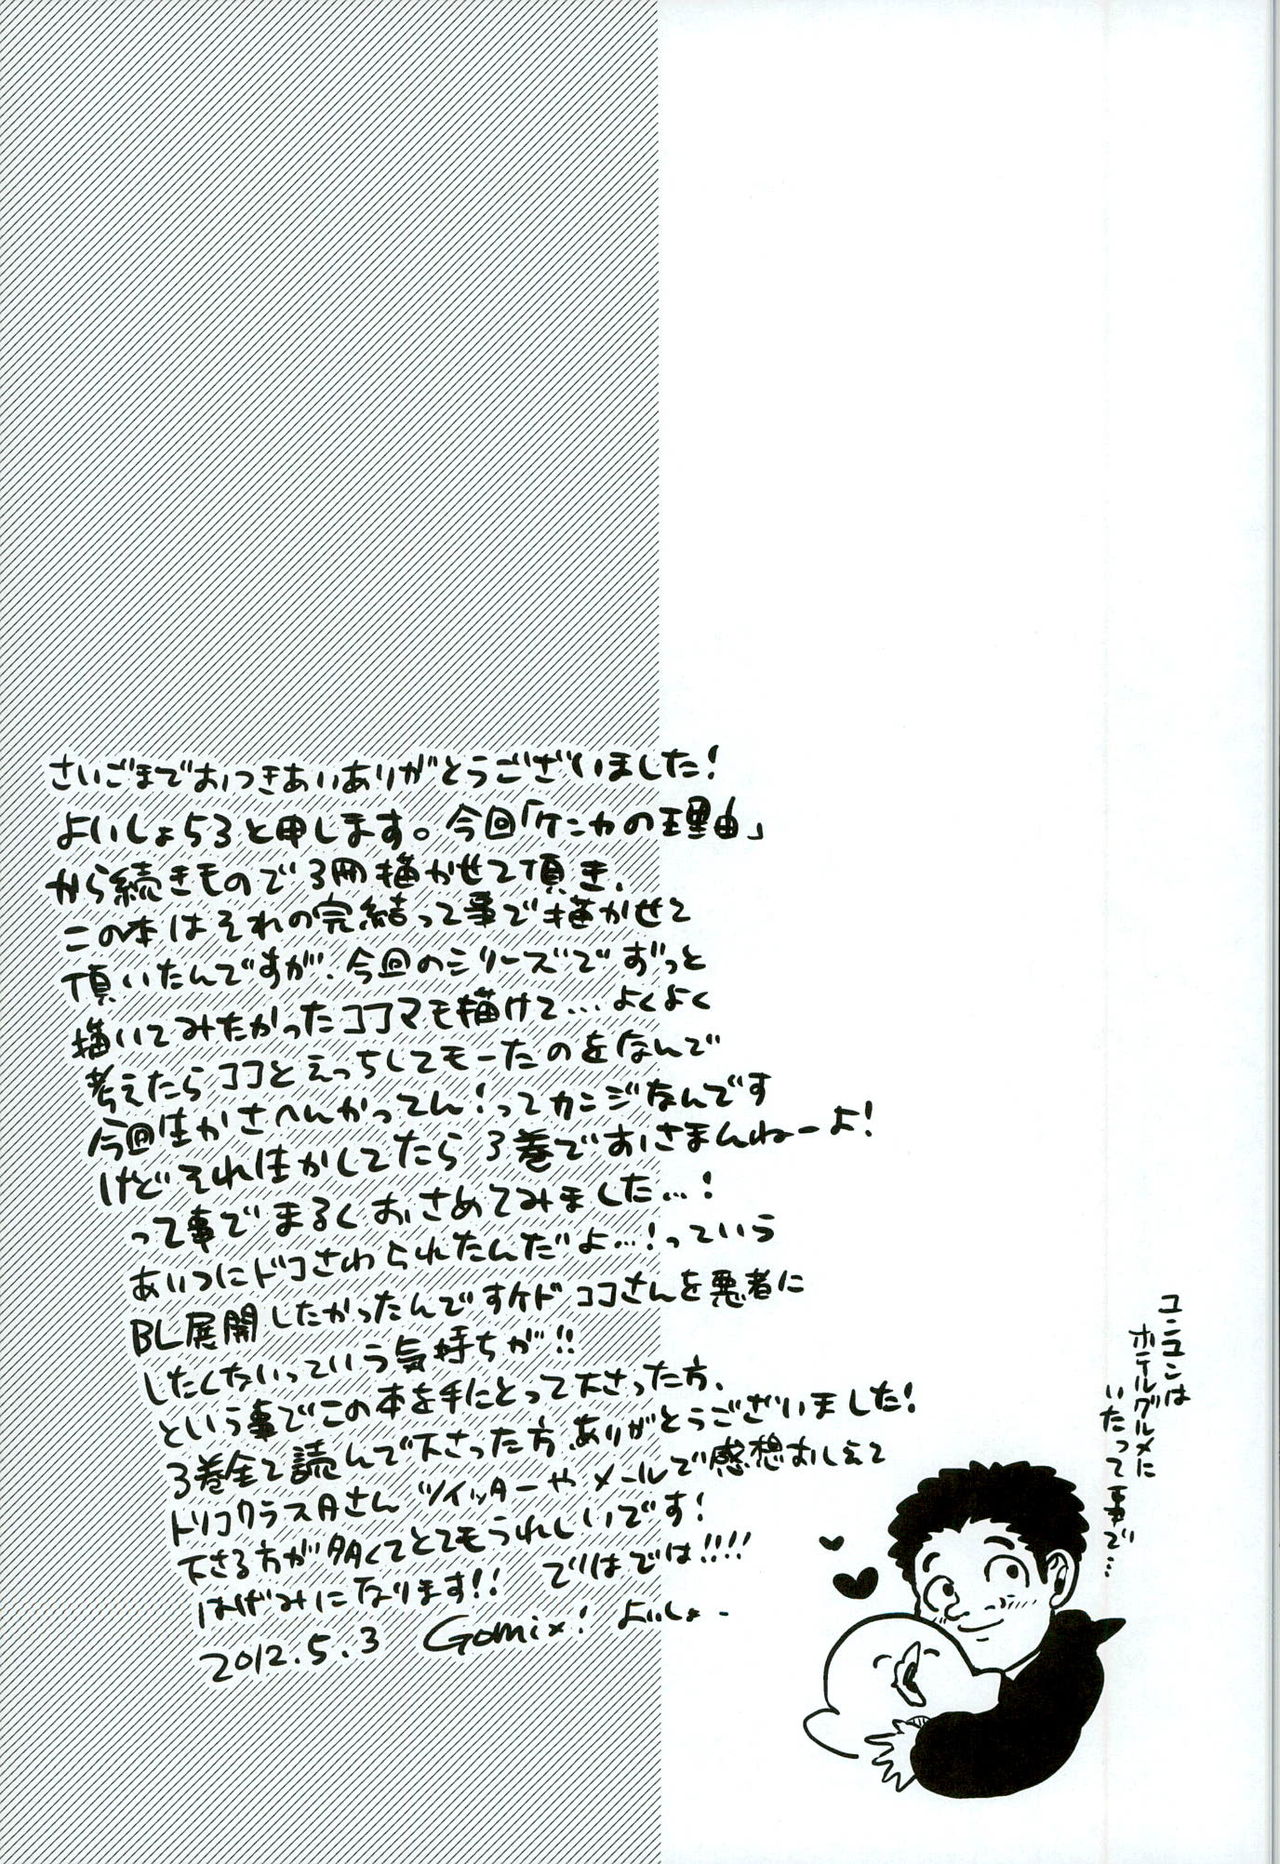 さいごまでおつきあいありがとうございました!
よいしょ53と申します。今回「ケンカの理由」
から続きもので3冊描かせて頂き、
この本はそれの完結って事で描かせて
頂いたんですが、今回のシリーズでずっと
描いてみたかったココマも描けて…よくよく
考えたらココとえっちしてモーたのをなんで
今回生かさへんかってん!ってカンジなんです
けどそれ生かしてたら3巻でおさまんねーよ!
って事でまるくおさめてみました…!
あいつにドコさわられたんだよ…!っていう
BL展開したかったんですケドココさんを悪者に
したくないっていう気持ちが!!
という事でこの本を手にとって下さった方、
3巻全て読んで下さった方ありがとうございました!
トリコクラスタさん ツイッターやメールで感想おしえて
下さる方が多くてとてもうれしいです!
はげみになります!! ではでは!!!!
2012.5.3 Gomix! よいしょ.
ユンユンは
ホテルグルメに
いたって事で…